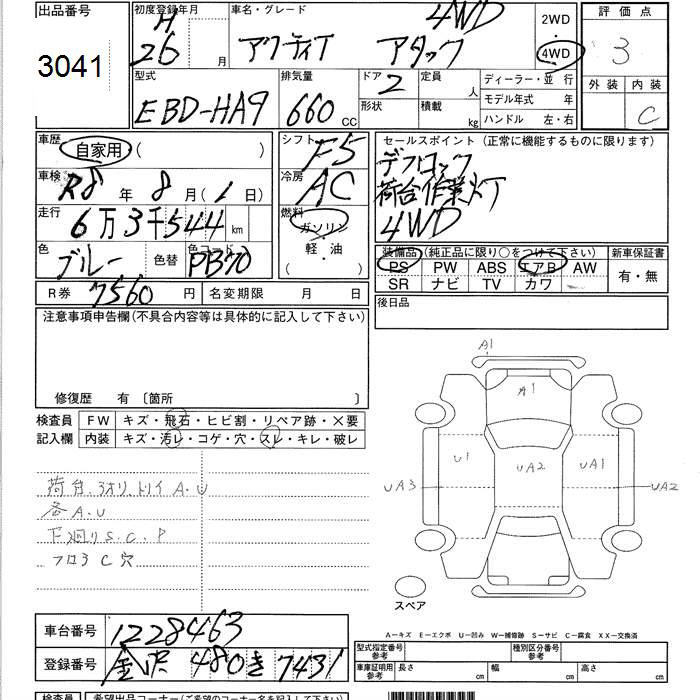 出品番号
3041
初度登録年月
H
26 月
車名・グレード
アクティT アタック 4WD
2WD
4WD
評 価 点
3
外 装 内 装
C
型式
EBD-HA9
排気量
660 cc
ドア 2
形状
定員 人
積載 kg
ディーラー・並 行
モデル年式 年
ハンドル 左・右
車歴
自家用 ( )
シフト
F5
車検
R8 年 8 月 ( 1 日)
冷房
AC
走行
6万3千544 km
燃料
ガソリン
軽・油
( )
色
ブルー
色替
色コード
PB70
R券 7560 円
名変期限 月 日
セールスポイント (正常に機能するものに限ります)
デフロック
荷台作業灯
4WD
装備品 (純正品に限り○をつけて下さい)
新車保証書
PS PW ABS エアB AW
SR ナビ TV カワ
有・無
後日品
注意事項申告欄(不具合内容等は具体的に記入して下さい)
修復歴 有 〔箇所 〕
検査員
記入欄
FW キズ・飛石・ヒビ割・リペア跡・×要
内装 キズ・汚レ・コゲ・穴・スレ・キレ・破レ
荷台、3オリ、トリイ A.U
各A.U
下廻りS.C.P
フロアC穴
A1
A1
U1 UA2 UA1
UA3
UA2
スペア
A―キズ E―エクボ U―凹み W―補修跡 S―サビ C―腐食 XX―交換済
車台番号 1228463
登録番号 金沢 480 き 7431
型式指定番号
参考
種別区分番号
参考
車庫証明用
参考
長さ cm 幅 cm 高さ cm
検査員
希望出品コーナー(ご希望のコーナー名を記入して下さい)